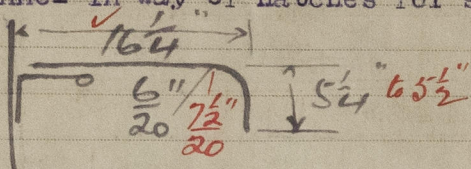 in way of hatches for
16 1/4"
6/20" / 7 1/2"/20 5 1/4" to 5 1/2"